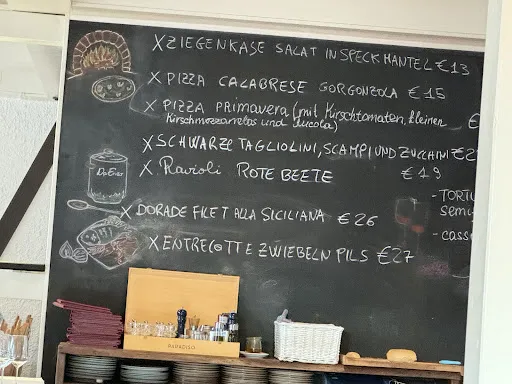 X ZIEGENKÄSE SALAT IN SPECKMANTEL €13
X PIZZA CALABRESE GORGONZOLA €15
X PIZZA PRIMAVERA (mit Kirschtomaten, kleinen €
Kirschmozzarellas und Rucola)
X SCHWARZE TAGLIOLINI, SCAMPI UND ZUCCHINI €2
X Ravioli ROTE BEETE €19
- TORTU
semi
X DORADE FILET ALLA SICILIANA €26
- cass
X ENTRECOTTE ZWIEBELN PILS €27
PARADISO